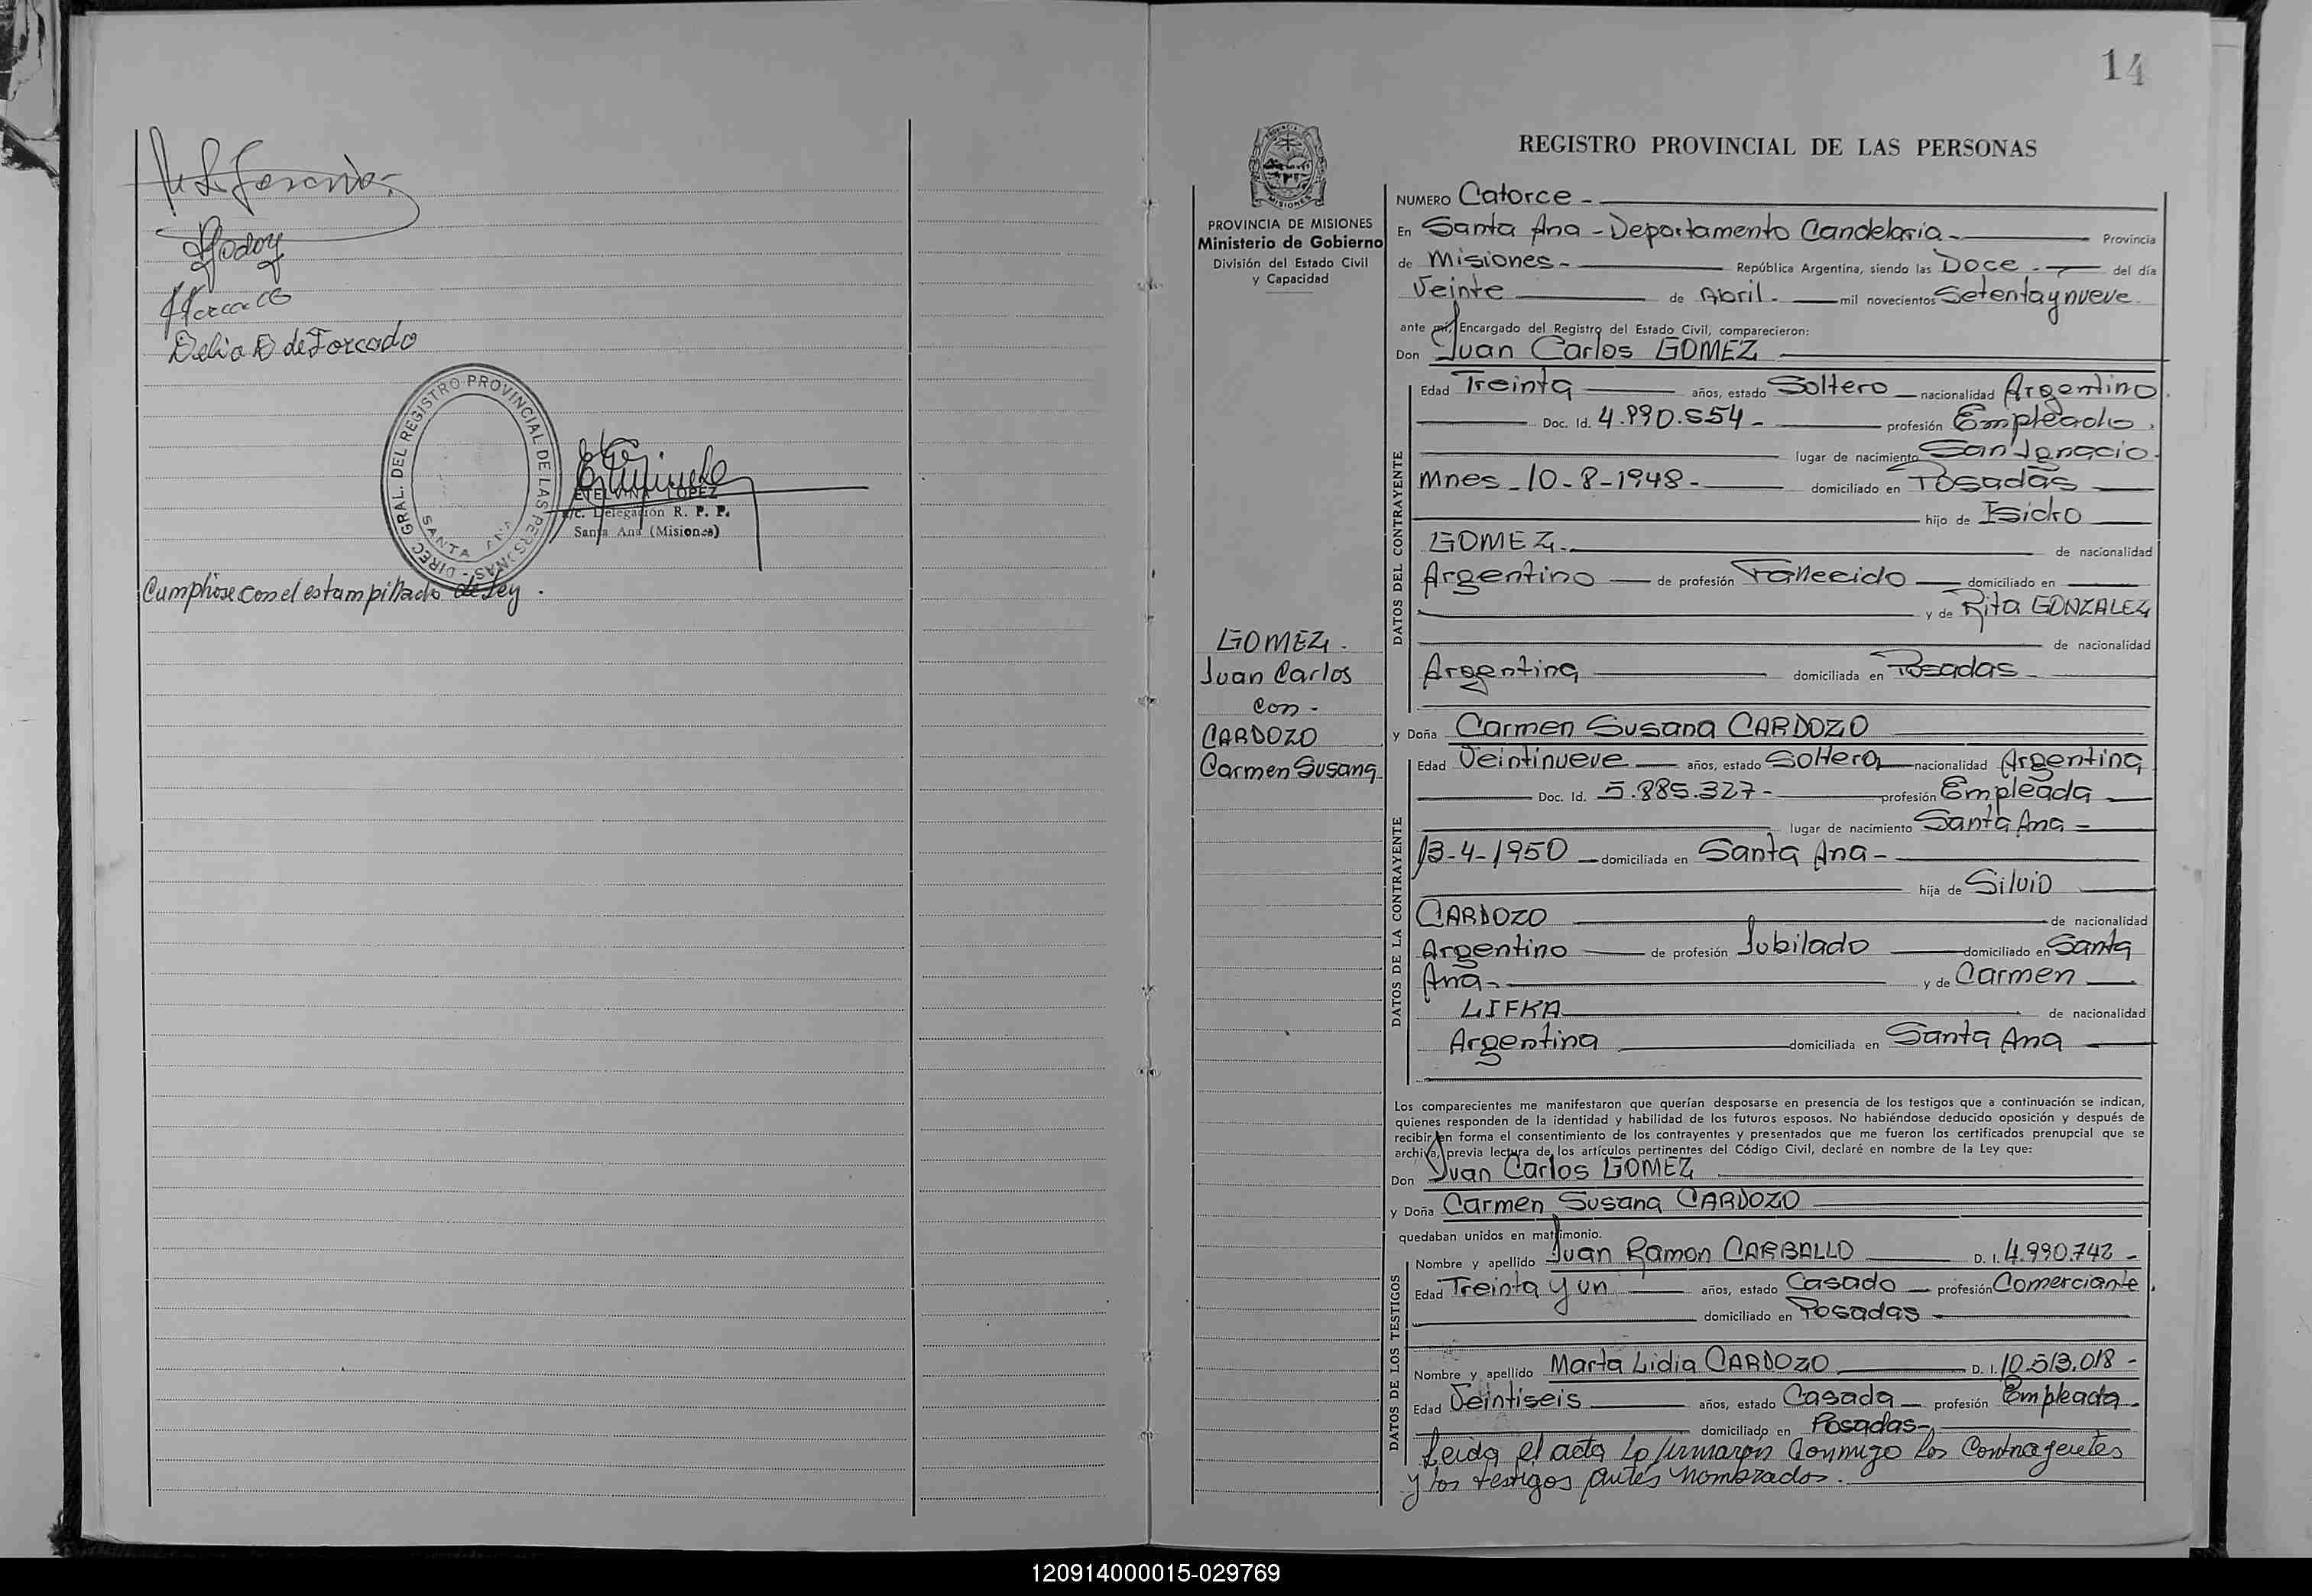 Godoy
Delia D de Forcado
DIREC GRAL. DEL REGISTRO PROVINCIAL DE LAS PERSONAS -
SANTA ANA
ETELVINA LOPEZ
a/c. Delegación R. P. P.
Santa Ana (Misiones)
Cumplióse con el estampillado de Ley.
14
REGISTRO PROVINCIAL DE LAS PERSONAS
PROVINCIA
MISIONES
PROVINCIA DE MISIONES
Ministerio de Gobierno
División del Estado Civil
y Capacidad
GOMEZ -
Juan Carlos
con -
CARDOZO
Carmen Susana
NUMERO Catorce -
En Santa Ana - Departamento Candelaria - Provincia
de Misiones - República Argentina, siendo las Doce - del día
Veinte de Abril - mil novecientos Setenta y nueve
ante mí, Encargado del Registro del Estado Civil, comparecieron:
Don Juan Carlos GOMEZ
DATOS DEL CONTRAYENTE
Edad Treinta años, estado Soltero nacionalidad Argentino
Doc. Id. 4.990.554 - profesión Empleado
lugar de nacimiento San Ignacio
Mnes - 10-8-1948 - domiciliado en Posadas
hijo de Isidro
GOMEZ - de nacionalidad
Argentino de profesión Fallecido domiciliado en
y de Rita GONZALEZ
de nacionalidad
Argentina domiciliada en Posadas -
y Doña Carmen Susana CARDOZO
DATOS DE LA CONTRAYENTE
Edad Veintinueve años, estado Soltera nacionalidad Argentina
Doc. Id. 5.885.327 - profesión Empleada
lugar de nacimiento Santa Ana -
13-4-1950 domiciliada en Santa Ana -
hija de Silvio
CARDOZO de nacionalidad
Argentino de profesión Jubilado domiciliado en Santa
Ana - y de Carmen
LIFKA de nacionalidad
Argentina domiciliada en Santa Ana
Los comparecientes me manifestaron que querían desposarse en presencia de los testigos que a continuación se indican,
quienes responden de la identidad y habilidad de los futuros esposos. No habiéndose deducido oposición y después de
recibir en forma el consentimiento de los contrayentes y presentados que me fueron los certificados prenupcial que se
archiva, previa lectura de los artículos pertinentes del Código Civil, declaré en nombre de la Ley que:
Don Juan Carlos GOMEZ
y Doña Carmen Susana CARDOZO
quedaban unidos en matrimonio.
DATOS DE LOS TESTIGOS
Nombre y apellido Juan Ramon CARBALLO D. I. 4.990.742 -
Edad Treinta y un años, estado Casado profesión Comerciante
domiciliado en Posadas -
Nombre y apellido Marta Lidia CARDOZO D. I. 10.513.018 -
Edad Veintiseis años, estado Casada profesión Empleada
domiciliado en Posadas -
Leida el acta la firmaron conmigo los Contrayentes
y los testigos antes nombrados.
120914000015-029769